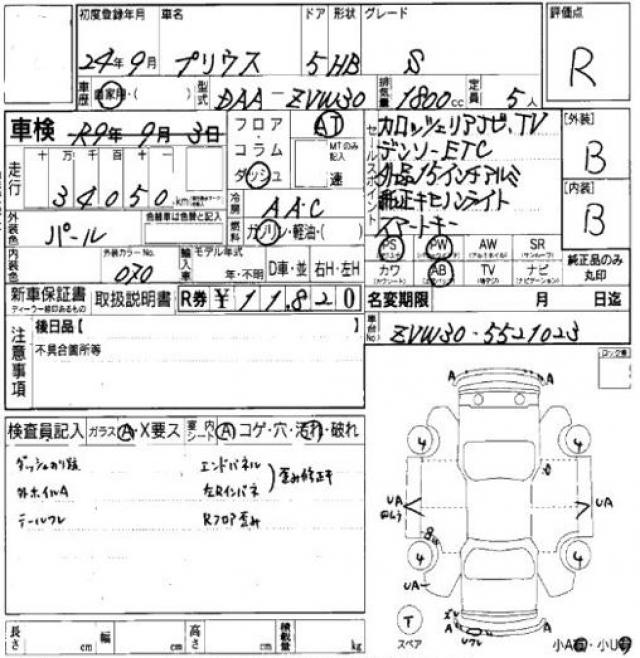 初度登録年月 車名 ドア 形状 グレード 評価点
24年9月 プリウス 5 HB S R
車歴 自家用・( ) 型式 DAA-ZVW30 排気量 1800cc 定員 5人
車検 R9年9月3日 フロア・コラム・ダッシュ AT MTのみ記入 速
セールスポイント
カロッツェリアナビ、TV
デンソーETC
外品15インチアルミ
純正キセノンライト
スマートキー
[外装] B
[内装] B
走行 十 万 千 百 十 一
34050km
冷房 AAC
外装色 パール 色替車は色替と記入
燃料 ガソリン・軽油・( )
内装色 外装カラーNo. 070 輸入車 モデル年式 年・不明 D車・並 右H・左H
PS PW AW SR
カワ AB TV ナビ
純正品のみ丸印
新車保証書 ディーラー印あるもの 取扱説明書 R券 ¥11,820
名変期限 月 日迄
車台No. ZVW30-5521023
注意事項
後日品【
不具合箇所等
ロック車
検査員記入 ガラス A・X要ス 室内シート A コゲ・穴・汚れ・破れ
ダッシュのり跡 エンドパネル
外ホイルA 左Rインパネ 歪み修正キ
テールワレ Rフロア歪み
A A
4 4
UA UA
4 4
UA
T
スペア
A A
小A・小U
長さ cm 幅 cm 高さ cm 積載量 kg